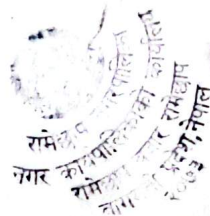 रामेछाप नगरपालिका
नगर कार्यपालिकाको कार्यालय
रामेछाप नगर रामेछाप
बागमती प्रदेश, नेपाल
२०७३